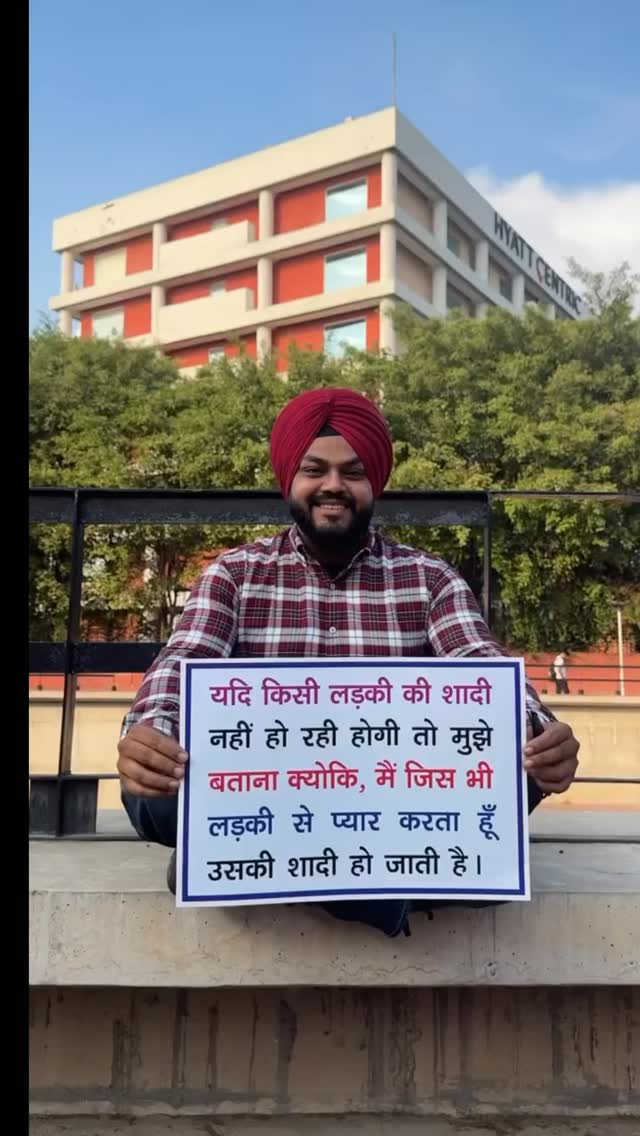 HYATT CENTRIC
यदि किसी लड़की की शादी
नहीं हो रही होगी तो मुझे
बताना क्योकि, मैं जिस भी
लड़की से प्यार करता हूँ
उसकी शादी हो जाती है।